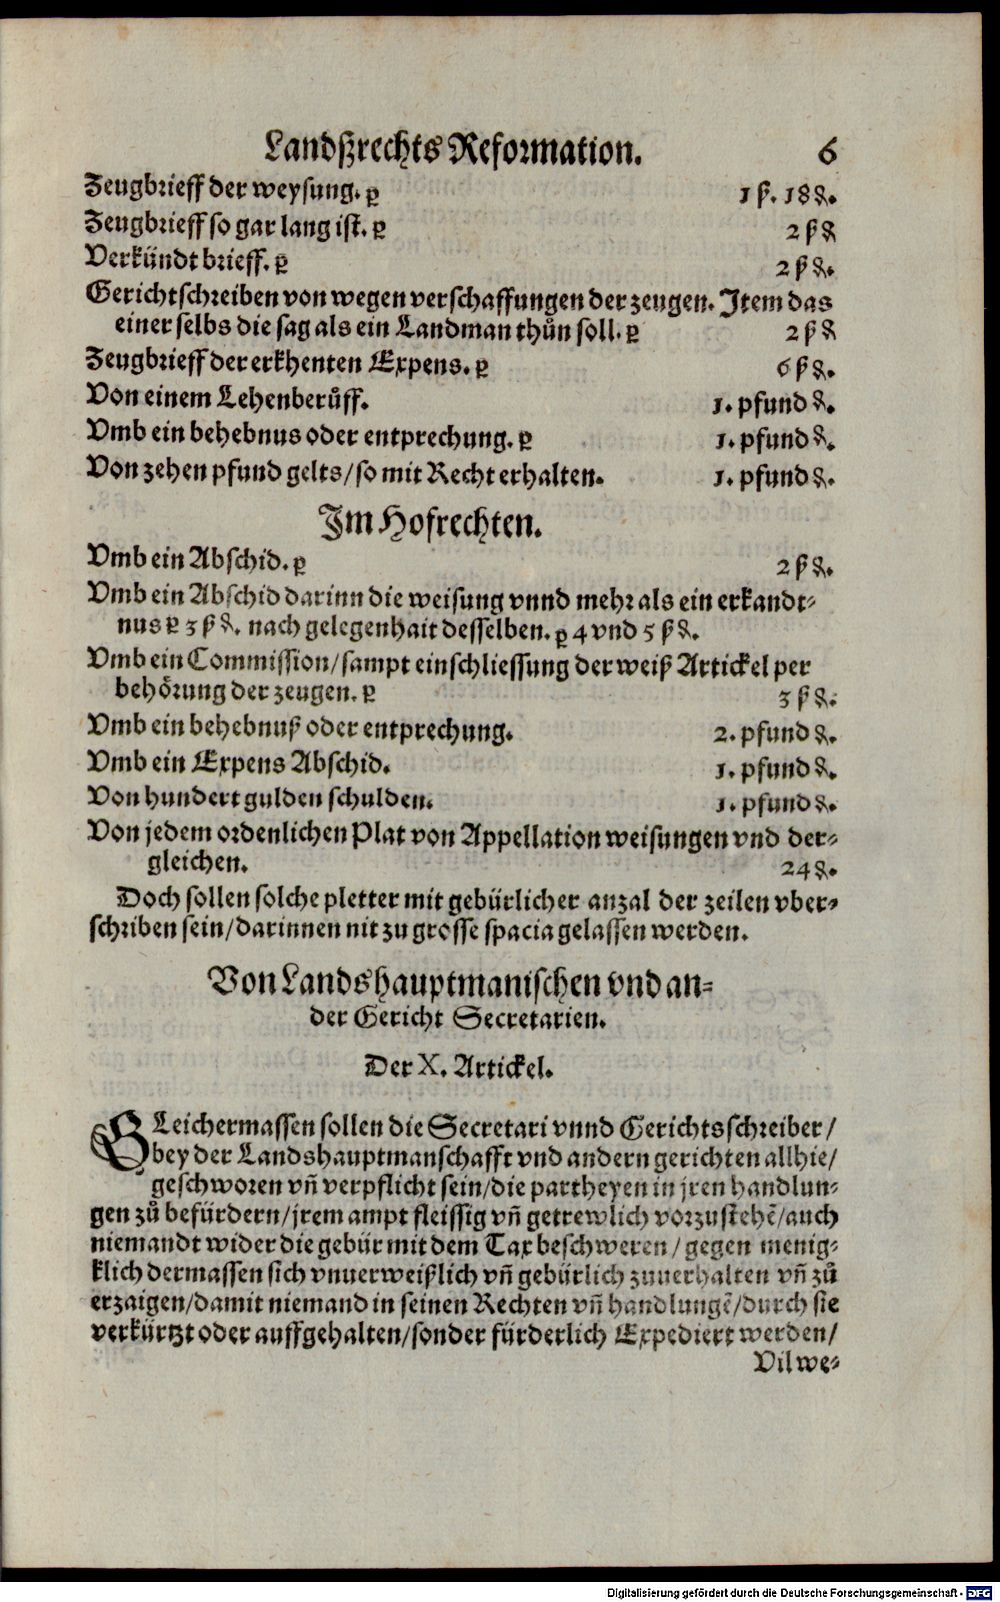 Landßrechts Reformation. 6
Zeugbrieff der weysung. ꝑ 1 ß. 18 ₰.
Zeugbrieff so gar lang ist. ꝑ 2 ß ₰
Verkündt brieff. ꝑ 2 ß ₰.
Gerichtschreiben von wegen verschaffungen der zeugen. Item das
einer selbs die sag als ein Landman thůn soll. ꝑ 2 ß ₰
Zeugbrieff der erkhenten Expens. ꝑ 6 ß ₰.
Von einem Lehenberůff. 1. pfund ₰.
Vmb ein behebnus oder entprechung. ꝑ 1. pfund ₰.
Von zehen pfund gelts/so mit Recht erhalten. 1. pfund ₰.
Im Hofrechten.
Vmb ein Abschid. ꝑ 2 ß ₰.
Vmb ein Abschid darinn die weisung vnnd mehr als ein erkandt-
nus ꝑ 3 ß ₰. nach gelegenhait desselben. ꝑ 4 vnd 5 ß ₰.
Vmb ein Commission/sampt einschliessung der weiß Artickel per
behörung der zeugen. ꝑ 3 ß ₰.
Vmb ein behebnuß oder entprechung. 2. pfund ₰.
Vmb ein Expens Abschid. 1. pfund ₰.
Von hundert gulden schulden. 1. pfund ₰.
Von jedem ordenlichen Plat von Appellation weisungen vnd der-
gleichen. 24 ₰.
Doch sollen solche pletter mit gebürlicher anzal der zeilen vber-
schriben sein/darinnen nit zu grosse spacia gelassen werden.
Von Landshauptmanischen vnd an-
der Gericht Secretarien.
Der X. Artickel.
GLeichermassen sollen die Secretari vnnd Gerichtsschreiber/
bey der Landshauptmanschafft vnd andern gerichten allhie/
geschworen vñ verpflicht sein/die partheyen in jren handlun-
gen zů befürdern/jrem ampt fleissig vñ getrewlich vorzustehẽ/auch
niemandt wider die gebür mit dem Tax beschweren/gegen menig-
klich dermassen sich vnuerweißlich vñ gebürlich zuuerhalten vñ zů
erzaigen/damit niemand in seinen Rechten vñ handlungẽ/durch sie
verkürtzt oder auffgehalten/sonder fürderlich Expediert werden/
Vil we-
Digitalisierung gefördert durch die Deutsche Forschungsgemeinschaft - DFG